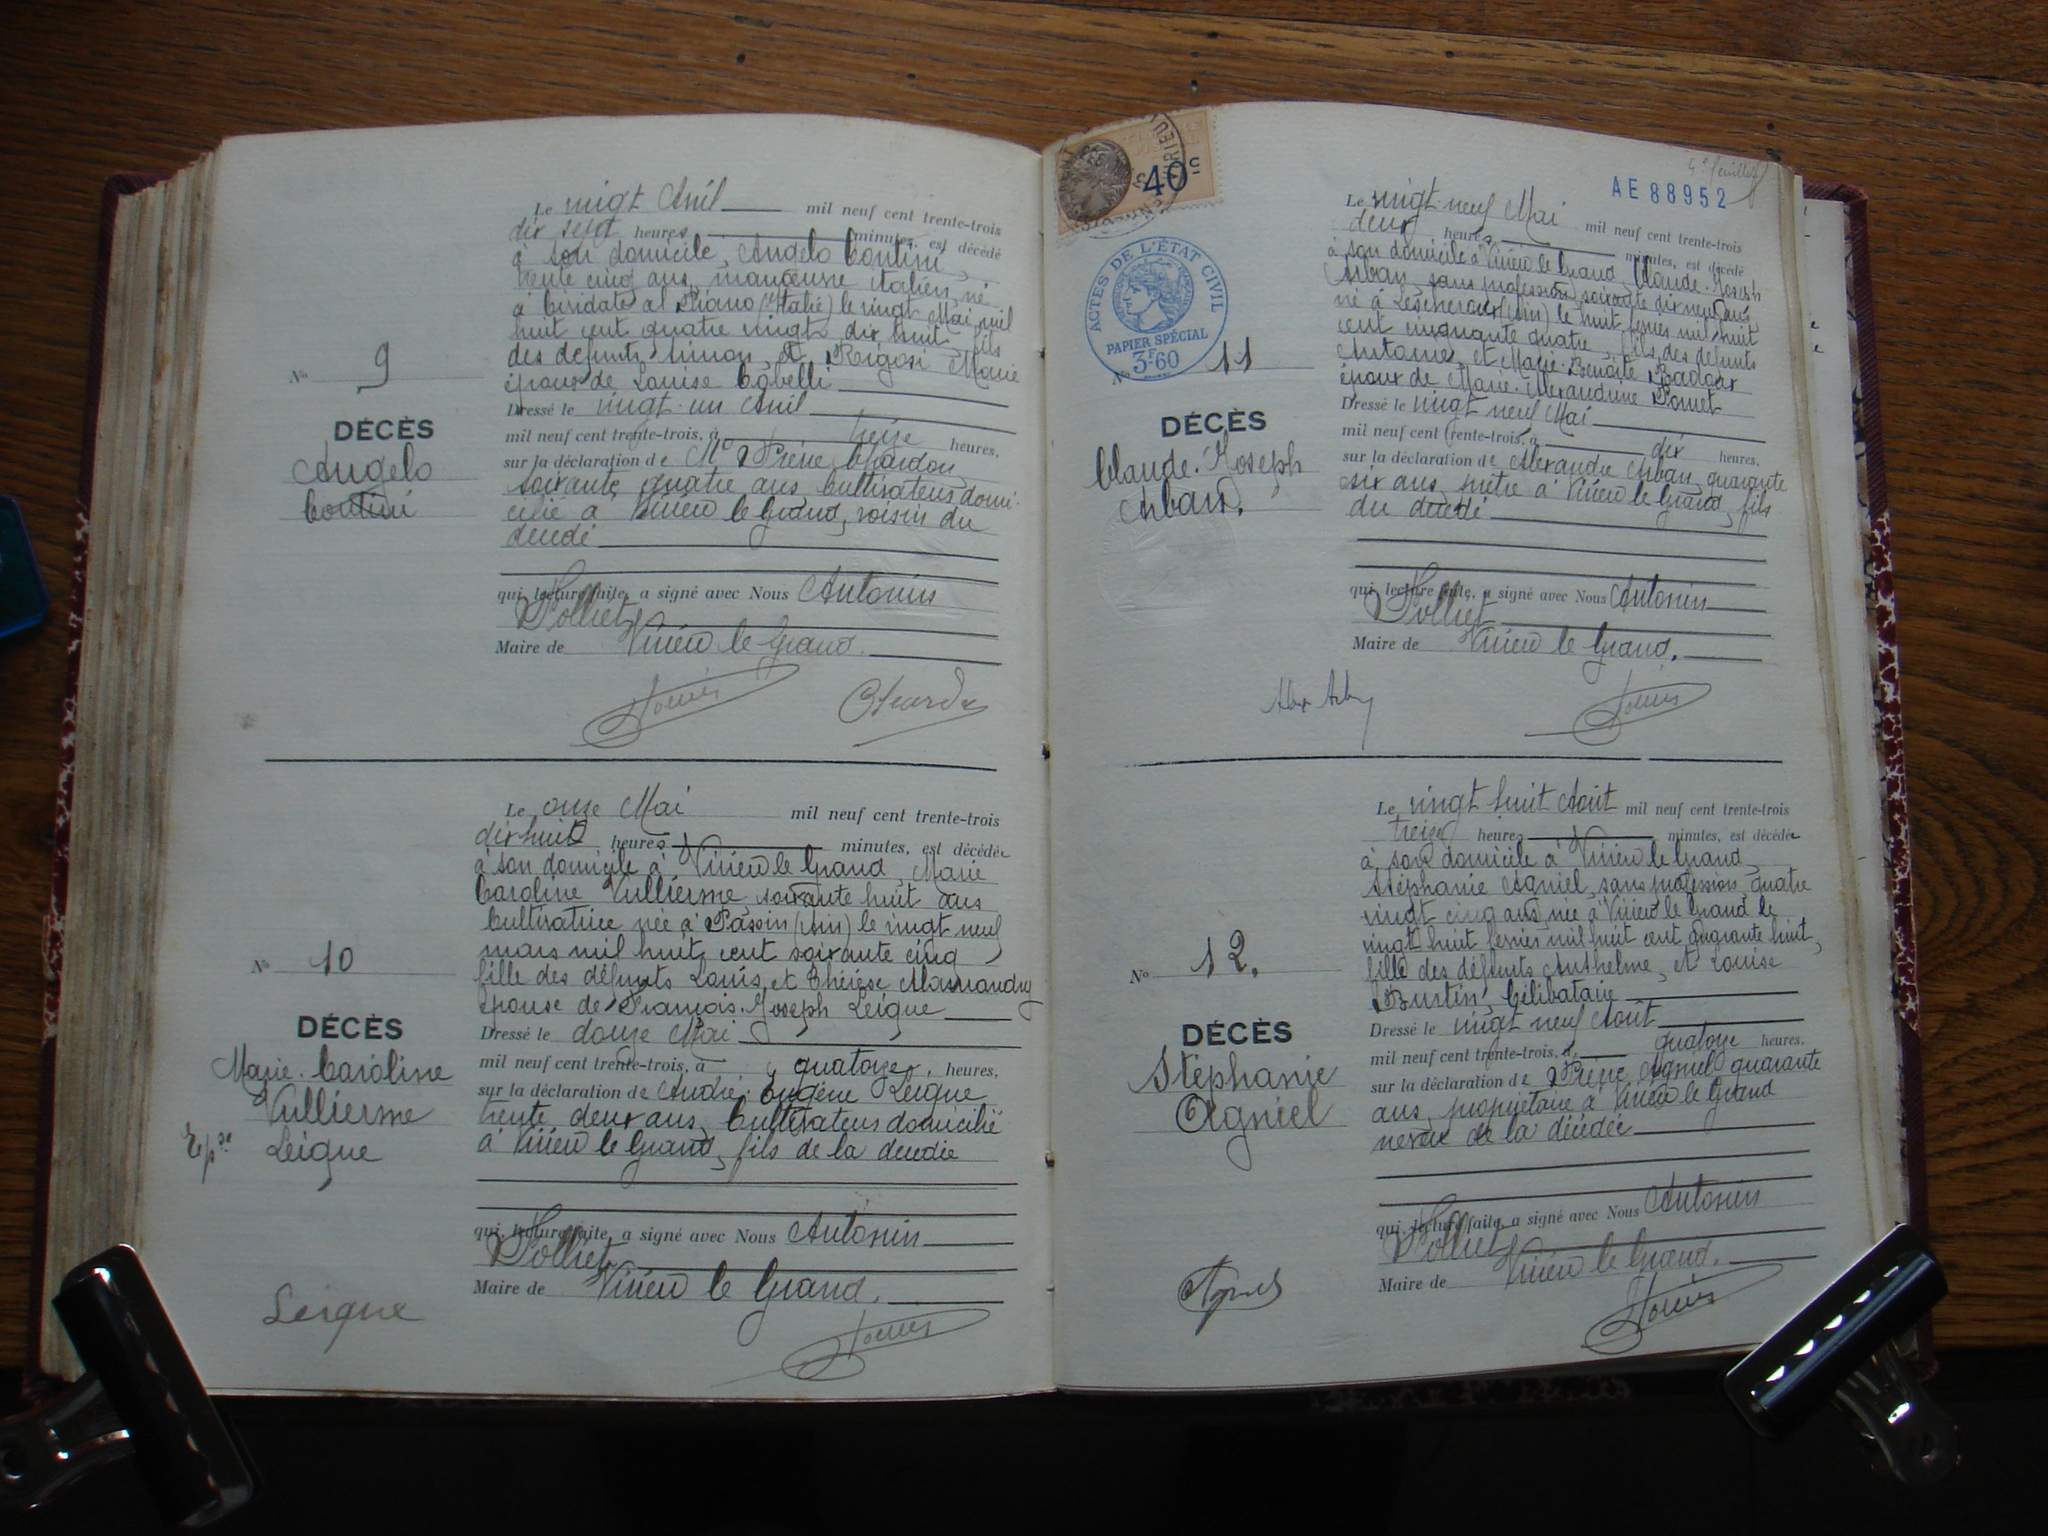 Le vingt Avril mil neuf cent trente-trois
dix sept heures minutes, est décédé
à son domicile, Angelo Contini,
trente cinq ans, manœuvre italien, né
à Cividate al Piano (Italie) le vingt Mai mil
huit cent quatre vingt dix huit fils
des défunts Simon et Rigosi Marie
époux de Louise
No 9
DÉCÈS
Angelo
Contini
Dressé le vingt-un Avril
mil neuf cent trente-trois, à treize heures,
sur la déclaration de Mr Pierre Chardon
soixante quatre ans Cultivateur domi-
cilié à Virieu le Grand, voisin du
décédé
qui, lecture faite, a signé avec Nous Antonin
Polliet
Maire de Virieu le Grand.
Le onze Mai mil neuf cent trente-trois
dix huit heures minutes, est décédée
à son domicile à Virieu le Grand, Marie
Caroline Vullierme, soixante huit ans
Cultivatrice née à (Ain) le vingt neuf
mars mil huit cent soixante cinq
fille des défunts Louis et Thérèse
épouse de François-Joseph Leigue
No 10
DÉCÈS
Marie-Caroline
Vullierme
Epse Leigue
Dressé le douze Mai
mil neuf cent trente-trois, à quatorze, heures,
sur la déclaration de André-Eugène Leigue
trente deux ans, Cultivateur domicilié
à Virieu le Grand, fils de la décédée
qui, lecture faite, a signé avec Nous Antonin
Polliet
Maire de Virieu le Grand.
Leigue
4e feuillet
AE 88952
40c
ACTES DE L'ÉTAT CIVIL
PAPIER SPÉCIAL
3F60
Le vingt-neuf Mai mil neuf cent trente-trois
deux heures minutes, est décédé
à son domicile à Virieu le Grand, Claude-Joseph
Arban sans profession, soixante dix neuf ans
né à Lescheroux (Ain) le huit février mil huit
cent cinquante quatre fils des défunts
Antoine et Marie-Benoîte
époux de Marie-Alexandrine
No 11
DÉCÈS
Claude-Joseph
Arban.
Dressé le vingt neuf Mai
mil neuf cent trente-trois, à dix heures,
sur la déclaration de Alexandre Arban, quarante
six ans, à Virieu le Grand, fils
du décédé
qui, lecture faite, a signé avec Nous Antonin
Polliet
Maire de Virieu le Grand.
Alex Arban
Le vingt huit Août mil neuf cent trente-trois
treize heures minutes, est décédée
à son domicile à Virieu le Grand,
Stéphanie Agniel, sans profession, quatre
vingt cinq ans, née à Virieu le Grand le
vingt huit février mil huit cent quarante huit,
fille des défunts Anthelme, et Louise
Bustin, Célibataire
No 12.
DÉCÈS
Stéphanie
Agniel
Dressé le vingt neuf Août
mil neuf cent trente-trois, à quatorze heures,
sur la déclaration de Pierre Agniel quarante
ans, propriétaire à Virieu le Grand
neveu de la décédée
qui, lecture faite, a signé avec Nous Antonin
Polliet
Maire de Virieu le Grand.
Agniel